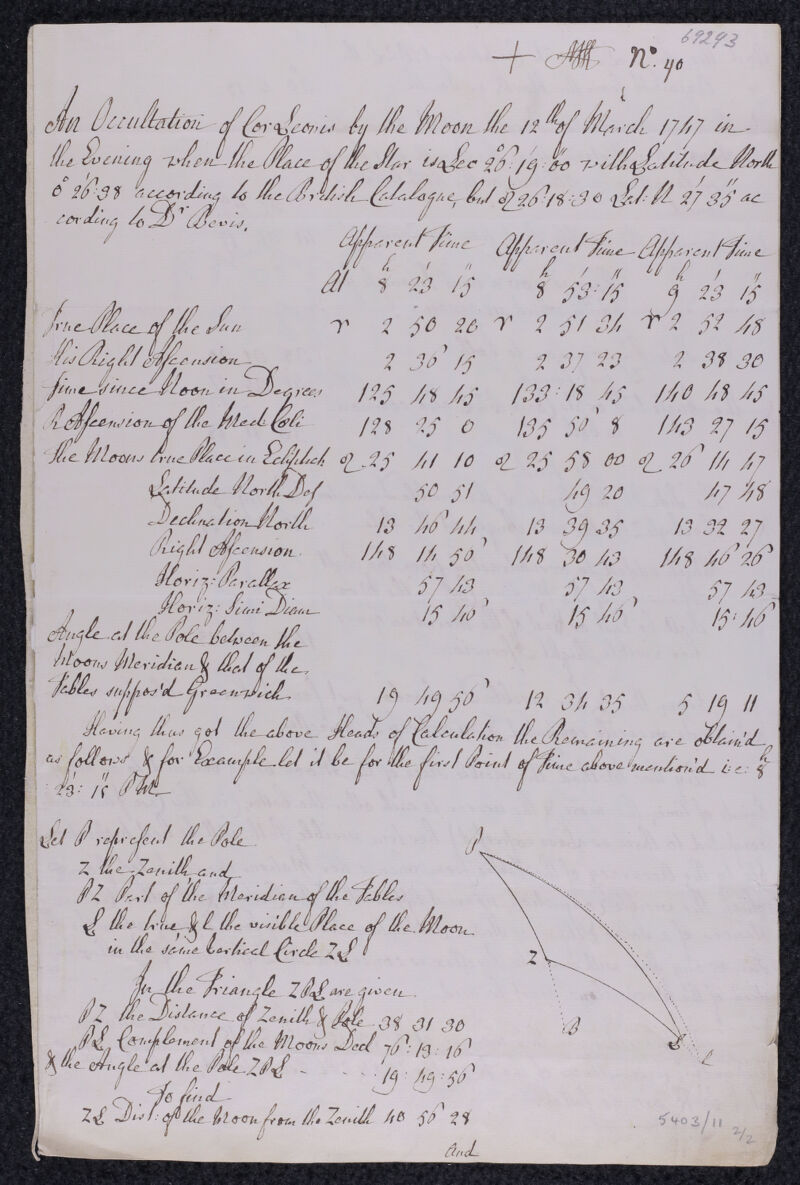 69293
+ No. 40
An Occultation of Cor Leonis by the Moon the 12th of March 1747 in
the Evening when the Place of the Star is Leo 26°: 19': 00 with Latitude North
0° 26': 38 according to the British Catalogue, but ♌ 26: 18: 30 Lat: N 27' 35" ac
cording to Dr Bevis.
Apparent Time Apparent Time Apparent Time
At 8h 23' 15" 8h 53': 15" 9h 23' 15"
True Place of the Sun ♈ 2 50 20 ♈ 2 51 34 ♈ 2 52 48
His Right Ascension 2 36 15 2 37 23 2 38 30
Time since Noon in Degrees 125 48 45 133: 18 45 140 48 45
R Ascension of the Med Cœli 128 25 0 135 56 8 143 27 15
The Moons true Place in Ecliptick ♌ 25 41 10 ♌ 25 58 00 ♌ 26 14 47
Latitude North Des 50 51 49 20 47 48
Declination North 13 46 44 13 39 35 13 32 27
Right Ascension 148 14 56 148 30 43 148 46 26
Horiz: Parallax 57 43 57 43 57 43
Horiz: Simi Diam 15 46 15 46 15: 46
Angle at the Pole between the
Moons Meridian & that of the
Tables suppos'd Greenwich 19 49 56 12 34 35 5 19 11
Having thus got the above Heads of Calculation the Remaining are obtain'd
as follows & for Example let it be for the first Point of Time above mention'd i:e: 8h
: 23': 15" P M
Let P represent the Pole
Z the Zenith and
PZ Part of the Meridian of the Tables
L the true & l the visible Place of the Moon
in the same Vertical Circle ZL
In the Triangle ZPL are given
PZ the Distance of Zenith & Pole 38 31 30
PL Complement of the Moons Decl 76: 13: 16
& the Angle at the Pole ZPL - - - - 19: 49: 56
To find
ZL Dist: of the Moon from the Zenith 40 56 28
and
P
Z
B
L
l
5403/11
2/2